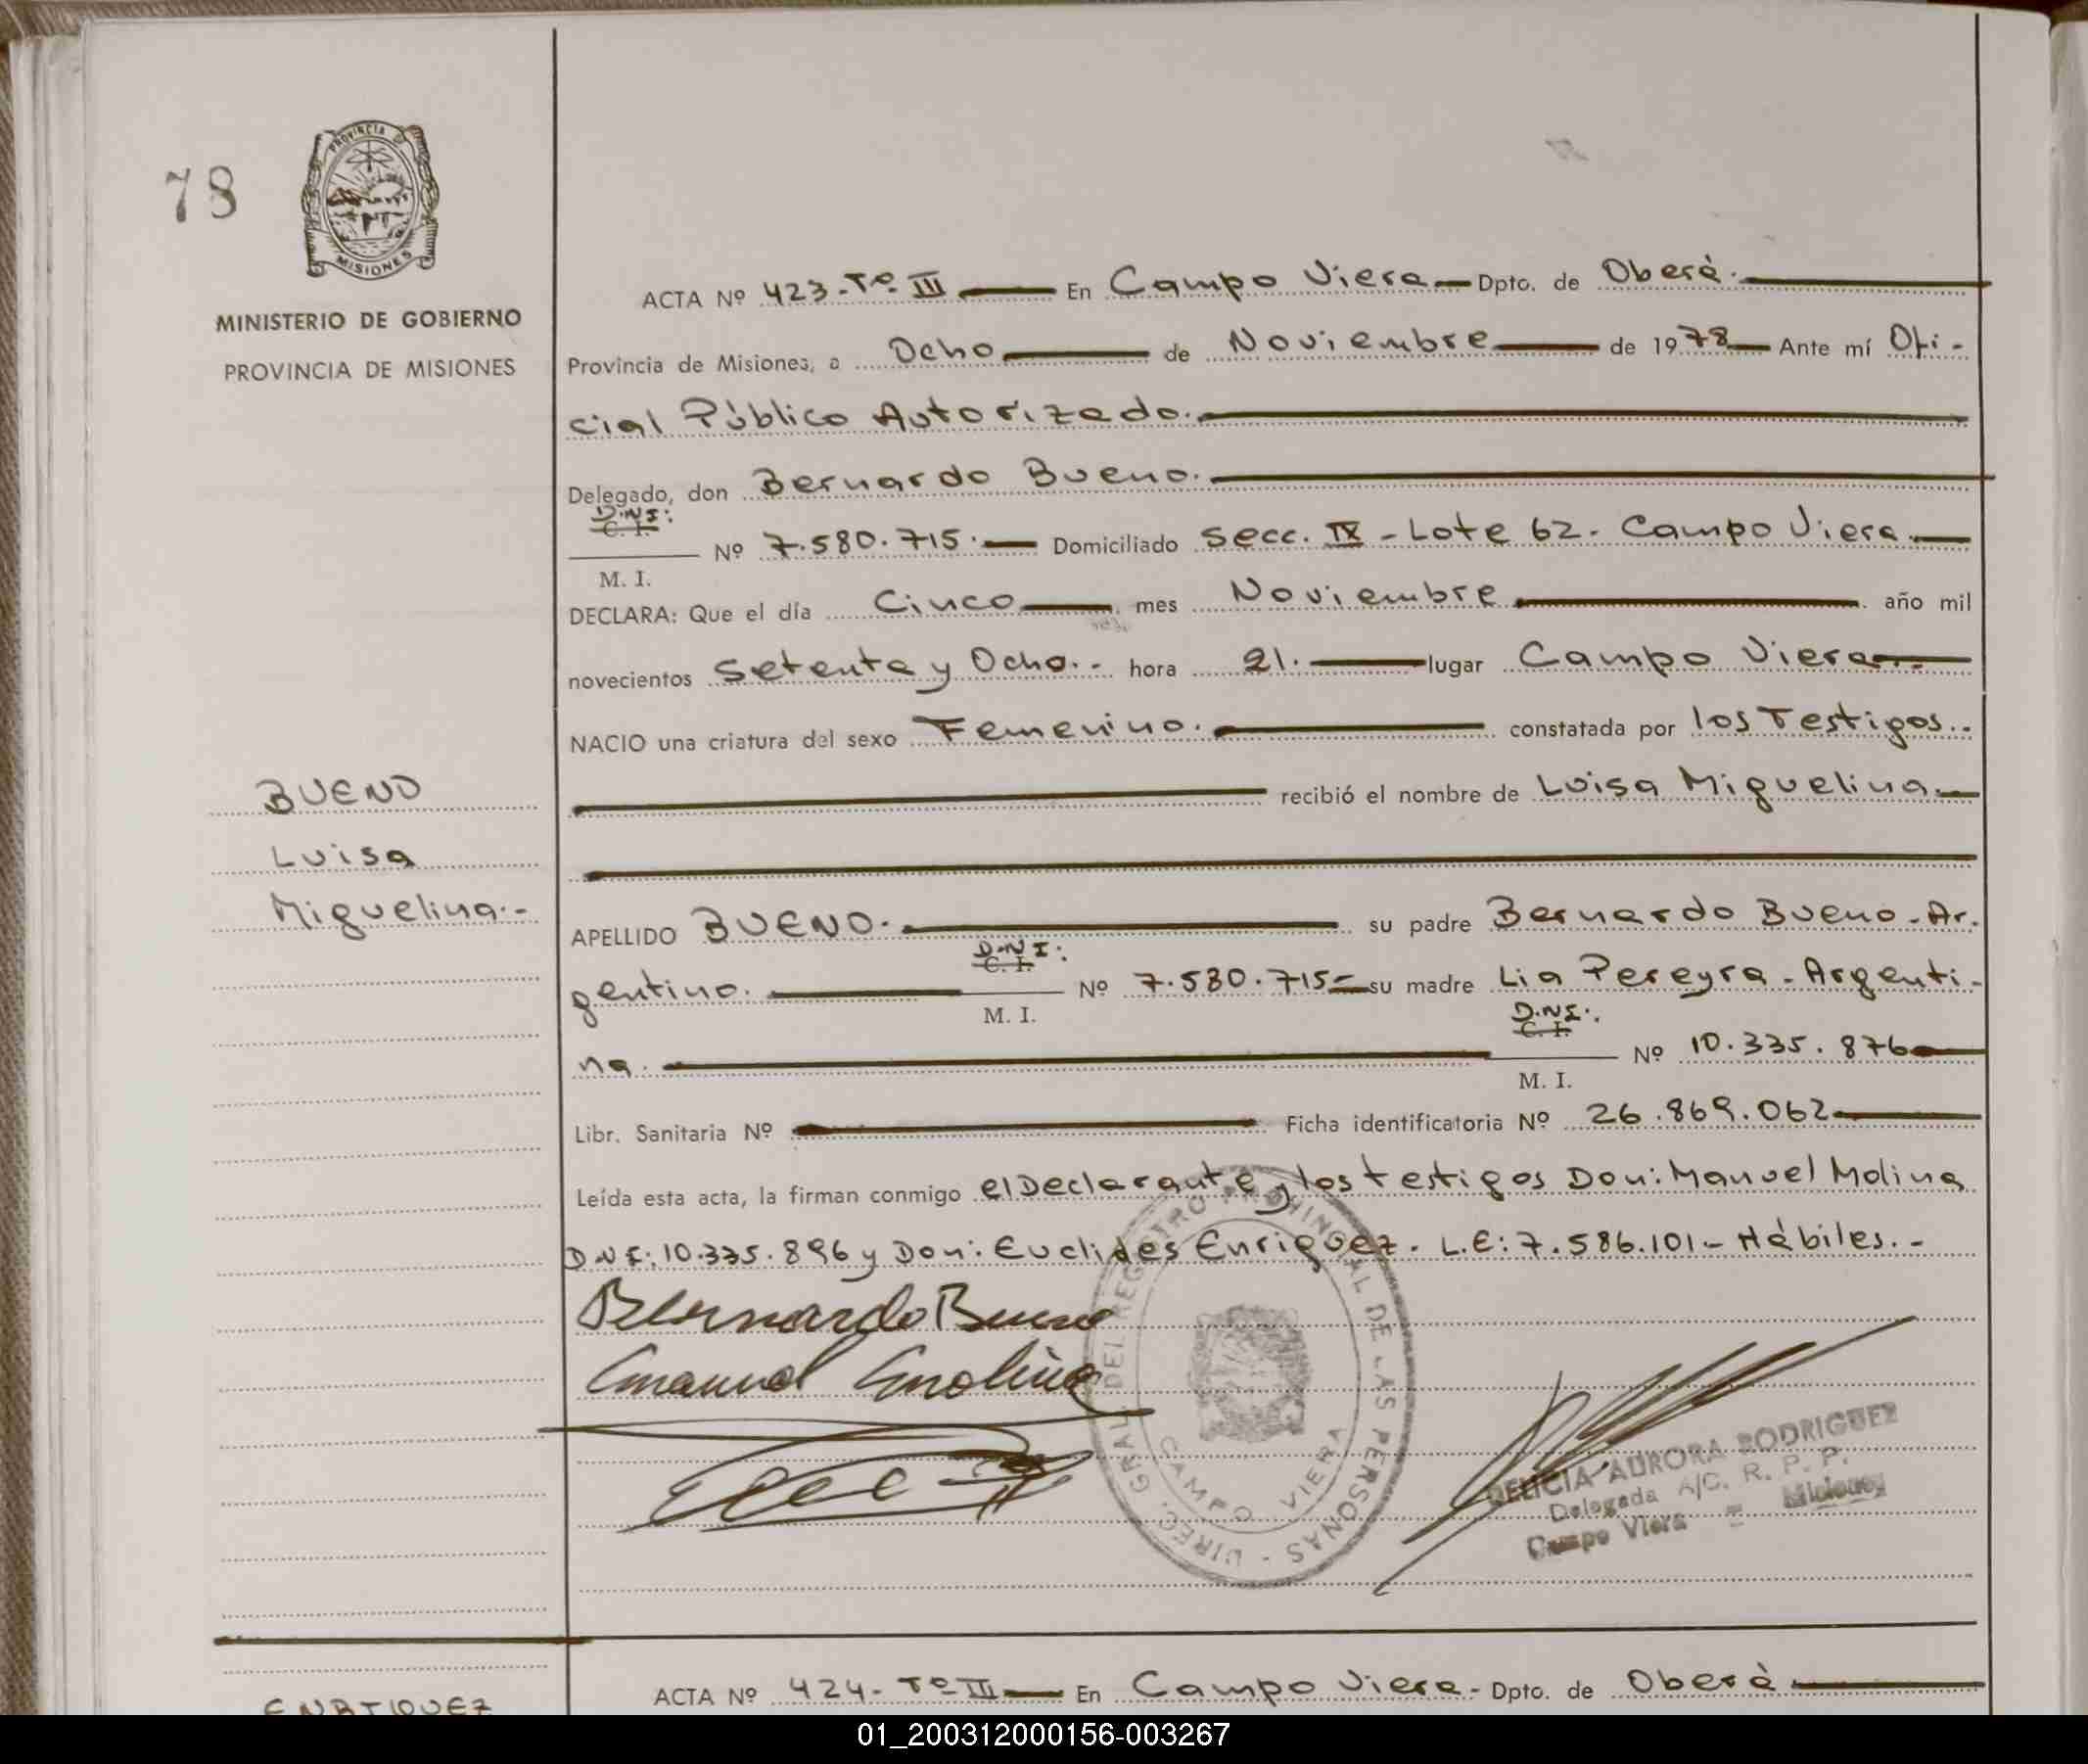 78
PROVINCIA DE
MISIONES
MINISTERIO DE GOBIERNO
PROVINCIA DE MISIONES
BUENO
Luisa
Miguelina.-
ACTA Nº 423-Tº III En Campo Viera Dpto. de Oberá.
Provincia de Misiones, a Ocho de Noviembre de 1978 Ante mí Ofi-
cial Público Autorizado.
Delegado, don Bernardo Bueno.
D.N.I:
C. I. Nº 7.580.715. Domiciliado Secc. IX - Lote 62. Campo Viera.
M. I.
DECLARA: Que el día Cinco mes Noviembre año mil
novecientos Setenta y Ocho.- hora 21. lugar Campo Viera.
NACIO una criatura del sexo Femenino. constatada por los Testigos..
recibió el nombre de Luisa Miguelina.
APELLIDO BUENO. su padre Bernardo Bueno - Ar.
D.N.I:
gentino. C. I. Nº 7.580.715= su madre Lia Pereyra - Argenti-
M. I.
D.N.I:.
na. C. I. Nº 10.335.876
M. I.
Libr. Sanitaria Nº Ficha identificatoria Nº 26.869.062
Leída esta acta, la firman conmigo el Declarante y los testigos Don: Manuel Molina
D N I: 10.335.896 y Don: Euclides Enriquez. L.E: 7.586.101 - Hábiles.-
Bernardo Bueno
Manuel Molina
DIREC. GRAL. DEL REGISTRO PROVINCIAL DE LAS PERSONAS -
CAMPO VIERA
DELICIA AURORA RODRIGUEZ
Delegada A/C. R. P. P.
Campo Viera = Misiones
ENRIQUEZ
ACTA Nº 424- Tº III En Campo Viera - Dpto. de Oberá
01_200312000156-003267